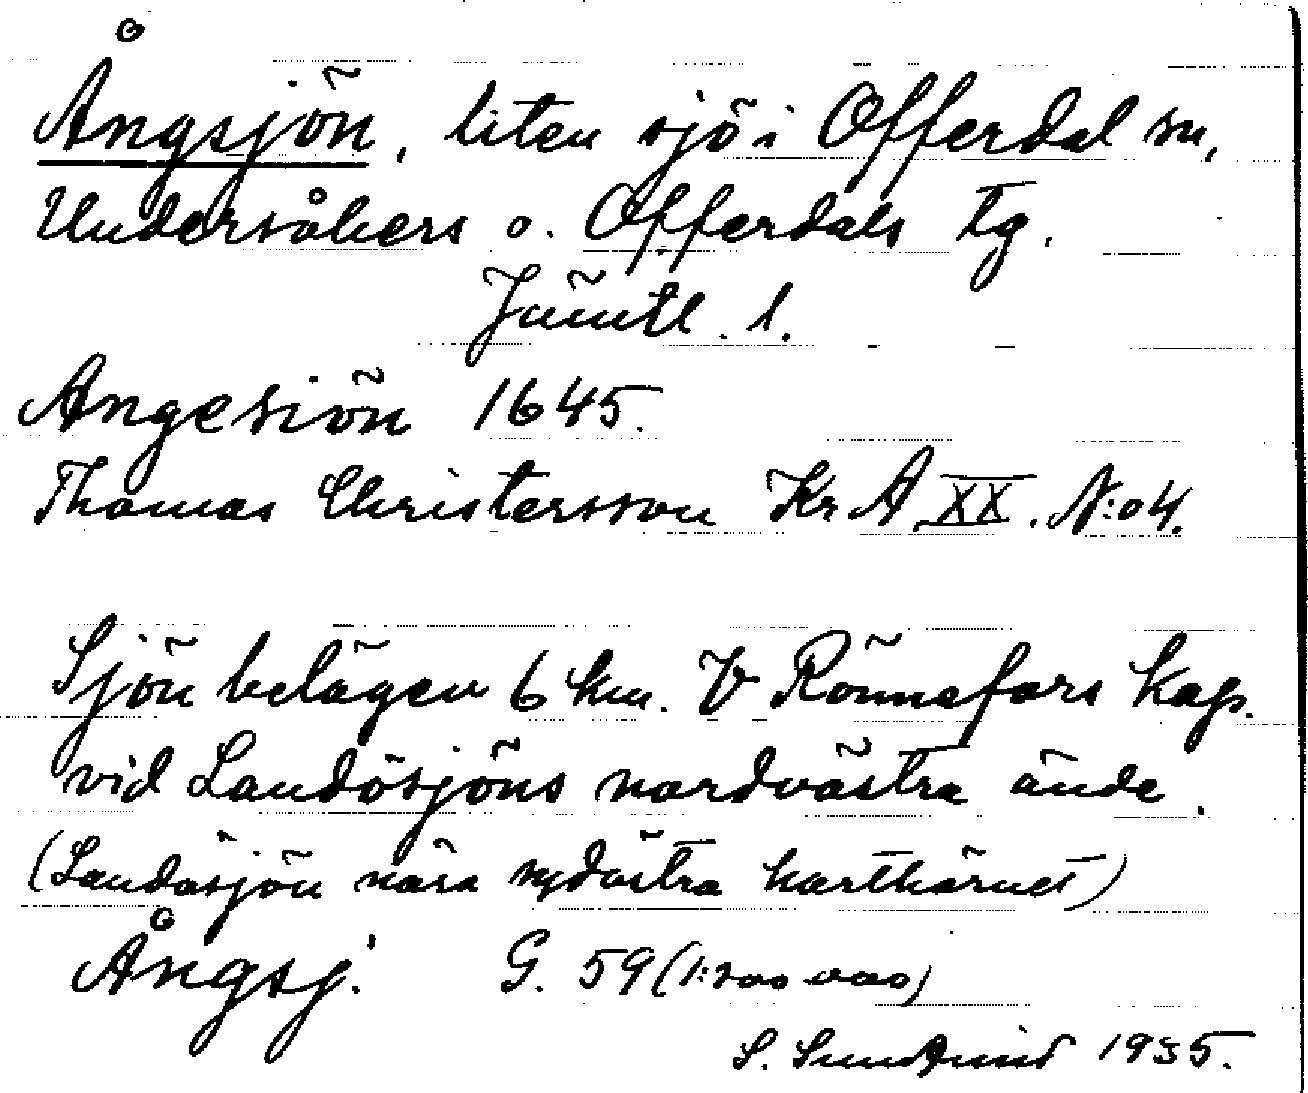 Ångsjön, liten sjö i Offerdal sn,
Undersåkers o. Offerdals tg.
Jämtl. l.
Angesiön 1645.
Thomas Christersson Kr A XX. N:o 4.
Sjön belägen 6 km. V Rönnefors kap.
vid Landösjöns nordvästra ände.
(Landösjön nära sydöstra karthörnet)
Ångsj. G. 59 (1:200 000)
S. 1935.